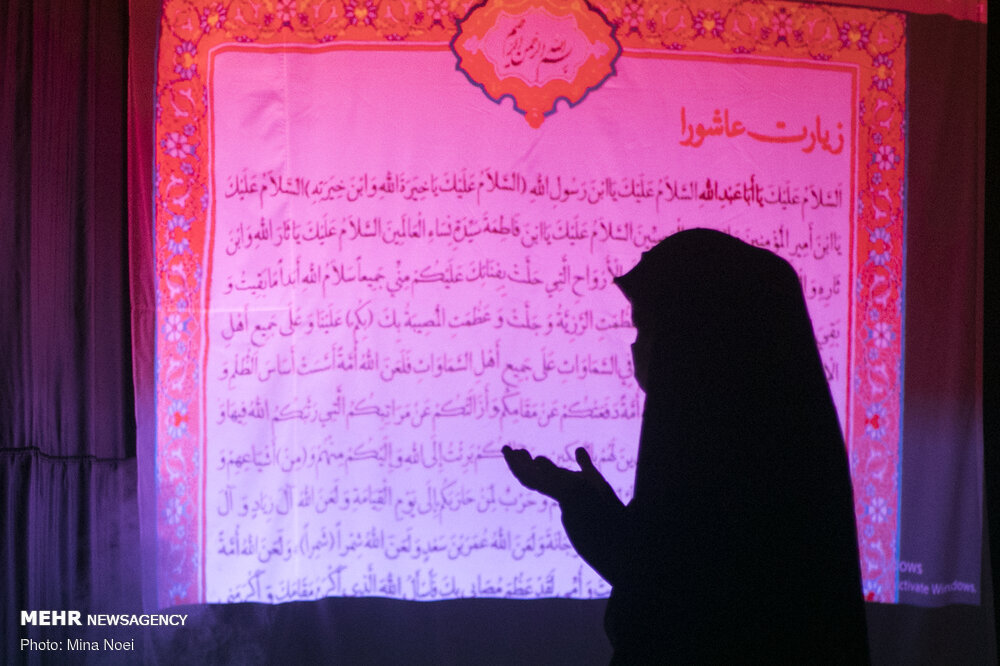 بسم الله الرحمن الرحیم
زیارت عاشورا
اَلسَّلاَمُ عَلَیْکَ یَا أَبَا عَبْدِ اللهِ السَّلاَمُ عَلَیْکَ یَا ابْنَ رَسُولِ اللهِ (السَّلاَمُ عَلَیْکَ یَا خِیَرَةَ اللهِ وَ ابْنَ خِیَرَتِهِ) السَّلاَمُ عَلَیْکَ
یَا ابْنَ أَمِیرِ الْمُؤْمِنِینَ السَّلاَمُ عَلَیْکَ یَا ابْنَ فَاطِمَةَ سَیِّدَةِ نِسَاءِ الْعَالَمِینَ السَّلاَمُ عَلَیْکَ یَا ثَارَ اللهِ وَ ابْنَ
ثَارِهِ وَ الْأَرْوَاحِ الَّتِي حَلَّتْ بِفِنَائِکَ عَلَیْکُمْ مِنِّي جَمِیعاً سَلاَمُ اللهِ أَبَداً مَا بَقِیتُ وَ
بَقِيَ الرَّزِیَّةُ وَ جَلَّتْ وَ عَظُمَتِ الْمُصِیبَةُ بِکَ (بِکُمْ) عَلَیْنَا وَ عَلَی جَمِیعِ أَهْلِ
السَّمَاوَاتِ عَلَی جَمِیعِ أَهْلِ السَّمَاوَاتِ فَلَعَنَ اللهُ أُمَّةً أَسَّسَتْ أَسَاسَ الظُّلْمِ وَ
أُمَّةً دَفَعَتْکُمْ عَنْ مَقَامِکُمْ وَ أَزَالَتْکُمْ عَنْ مَرَاتِبِکُمُ الَّتِي رَتَّبَکُمُ اللهُ فِیهَا وَ
لَهُمْ بَرِئْتُ إِلَی اللهِ وَ إِلَیْکُمْ مِنْهُمْ وَ (مِنْ) أَشْیَاعِهِمْ وَ
وَ حَرْبٌ لِمَنْ حَارَبَکُمْ إِلَی یَوْمِ الْقِیَامَةِ وَ لَعَنَ اللهُ آلَ زِیَادٍ وَ آلَ
وَ لَعَنَ اللهُ عُمَرَ بْنَ سَعْدٍ وَ لَعَنَ اللهُ شِمْراً (شَمِراً) وَ لَعَنَ اللهُ أُمَّةً
وَ أُمِّي لَقَدْ عَظُمَ مُصَابِي بِکَ فَأَسْأَلُ اللهَ الَّذِي أَکْرَمَ مَقَامَکَ وَ أَکْرَمَنِي
Activate Windows
MEHR NEWSAGENCY
Photo: Mina Noei